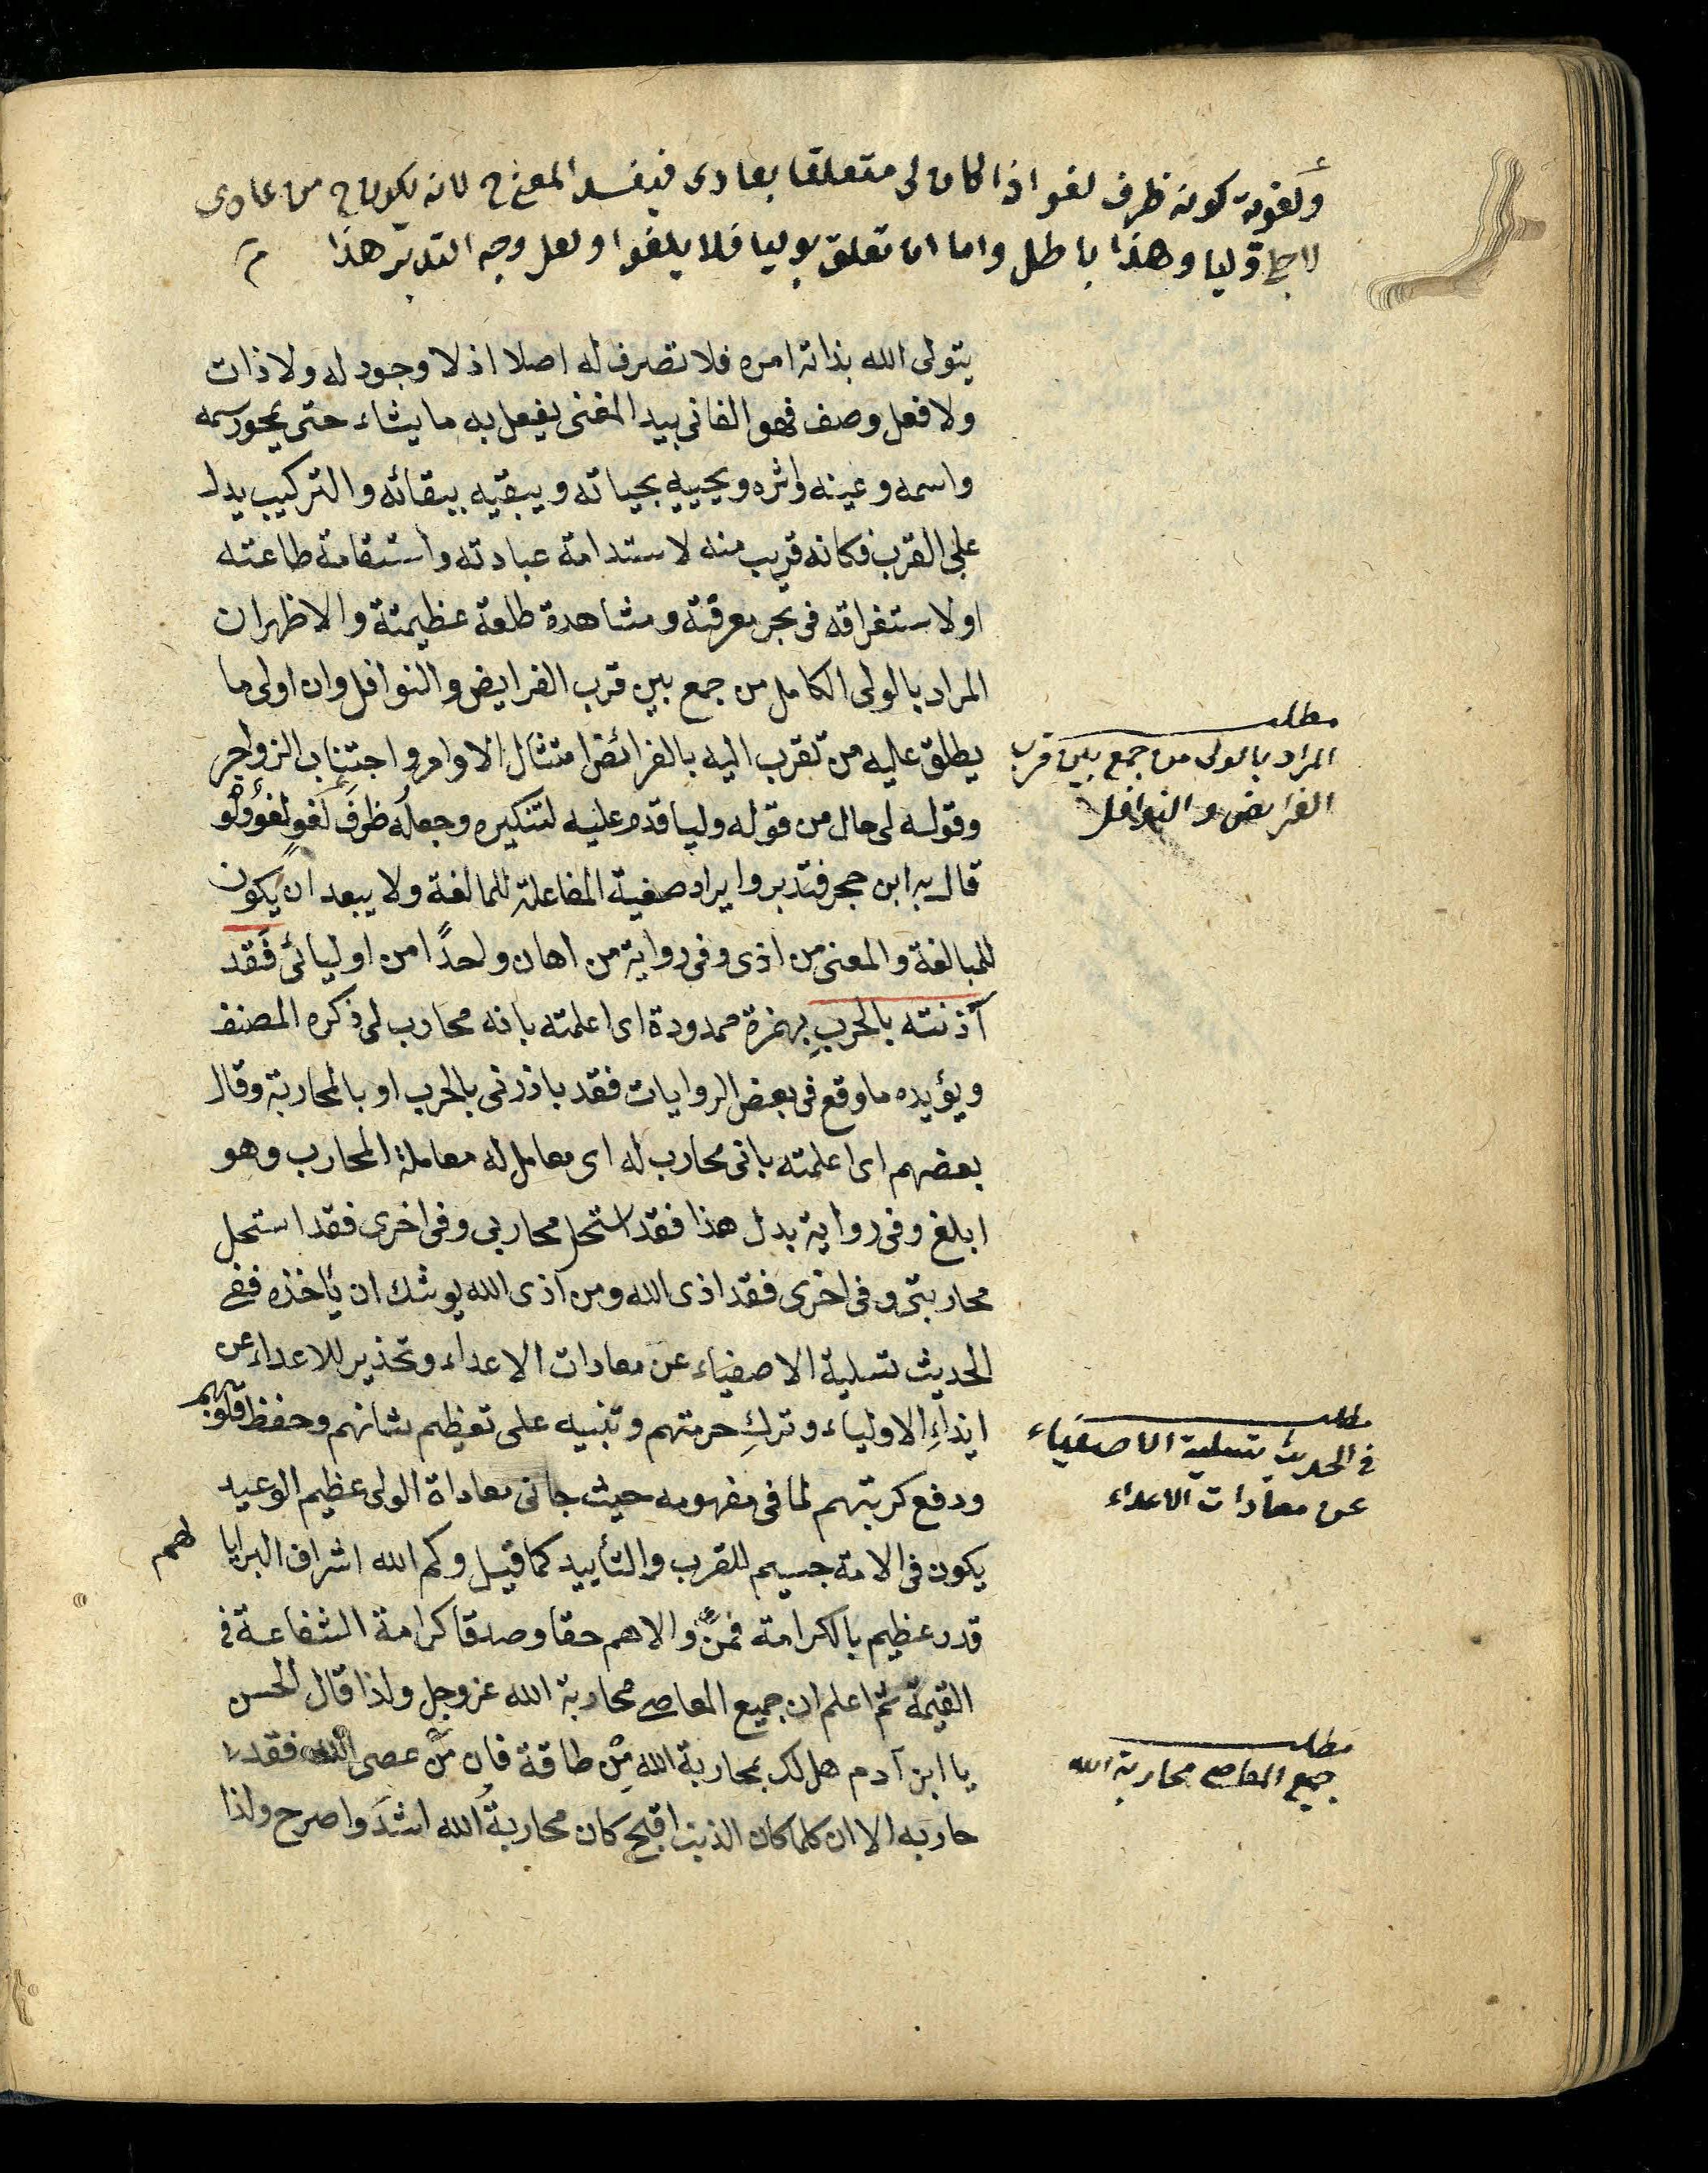 ولغوية كونه ظرف لغو اذا كان لى متعلقا بعادى فيفسد المعنى ح لانه يكون ح من عادى
لاجلى وليا وهذا باطل واما ان تعلق بوليا فلا يلغوا ولعل وجه التدبر هذا م
يتولى الله بذاته امره فلا تصرف له اصلا اذ لا وجود له ولا ذات
ولا فعل وصف فهو الفانى بيد المغنى يفعل به ما يشاء حتى يمحو رسمه
واسمه وعينه واثره ويحييه بحياته ويبقيه ببقائه والتركيب يدل
على القرب فكانه قريب منه لاستدامة عبادته واستقامة طاعته
او لاستغراقه فى بحر معرفتة ومشاهدة طلعة عظيمتة والاظهر ان
المراد بالولى الكامل من جمع بين قرب الفرايض والنوافل وان اولى ما
يطلق عليه من تقرب اليه بالفرائض امتثال الاوامر واجتناب الزواجر
وقوله لى حال من قوله وليا قدم عليه لتنكيره وجعله ظرف لغو لغو ولو
قال به ابن حجر فتدبر وايراد صغية المفاعلة للمالغة ولا يبعد ان يكون
للمبالغة والمعنى من اذى وفى رواية من اهان واحدًا من اوليائى فقد
آذنته بالحربِ بهمزة ممدودة اى اعلمته بانه محارب لى ذكره المصنف
ويؤيده ما وقع فى بعض الروايات فقد باذرنى بالحرب او بالمحاربة وقال
بعضهم اى اعلمته بانى محارب له اى معامل له معاملة المحارب وهو
ابلغ وفى رواية بدل هذا فقد استحل محاربى وفى اخرى فقد استحل
محاربتى وفى اخرى فقد اذى الله ومن اذى الله يوشك ان يأخذه ففى
الحديث تسلية الاصفياء عن معادات الاعداء وتحذير للاعداء عن
ايذاءِ الاولياء وتركِ حرمتهم وتنبيه على تعظيم شانهم وحفظ قلوبهم
ودفع كربتهم لما فى مفهومه حيث جانى معاداة الولى عظيم الوعيد
يكون فى الامة جسيم للقرب والتأييد كما قيل وكم الله اشراف البرايا لهم
قدر عظيم بالكرامة فمن والاهم حقا وصدقا كرامة الشفاعة فى
القيمة ثم اعلم ان جميع المعاصى محاربة الله عز وجل ولذا قال الحسن
يا ابن آدم هل لك بمحاربة الله مِنْ طاقة فان مَنْ عصى الله فقد
حاربه الا ان كلما كان الذنب اقبح كان محاربةُ الله اشدَ واصرح ولذا
مطلب
المراد بالولى من جمع بين قرب
الفرايض والنوافل
مطلب
فى الحديث تسلية الاصفياء
عن معادات الاعداء
مطلب
جميع المعاصى محاربة الله